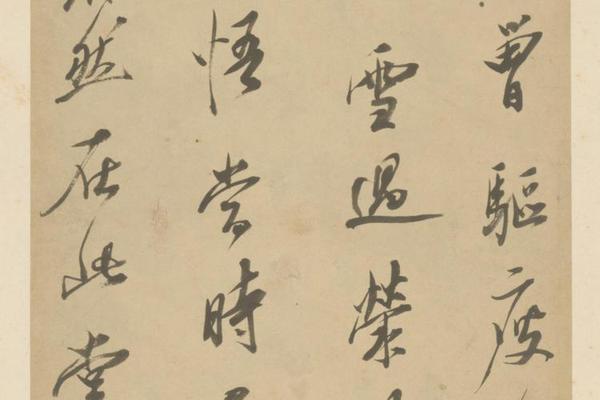 曾驅瘦
雪過榮
悟當時
然在此堂